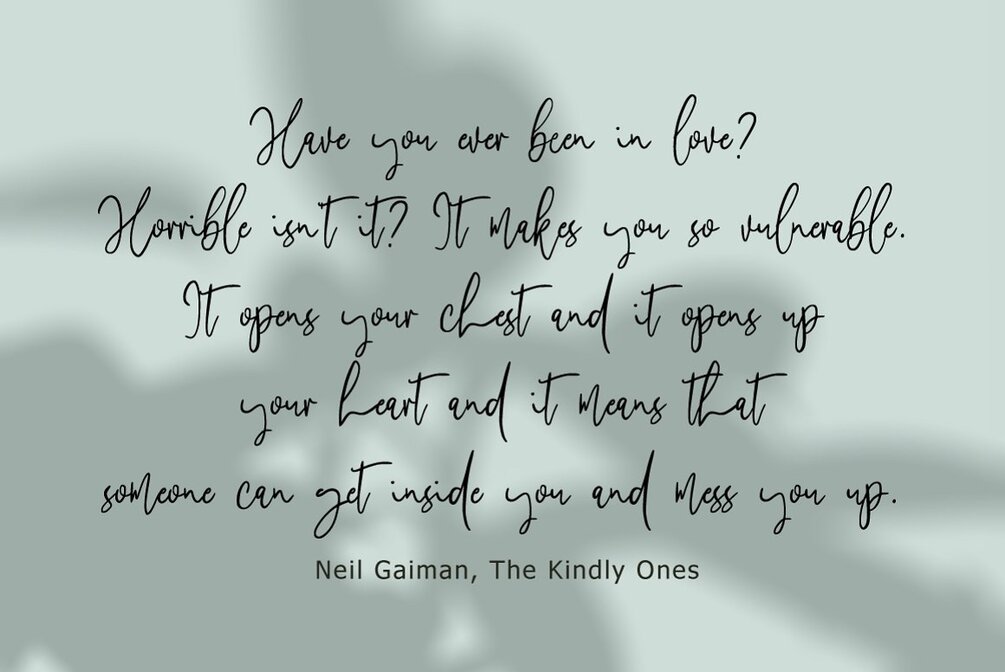 Have you ever been in love?
Horrible isn't it? It makes you so vulnerable.
It opens your chest and it opens up
your heart and it means that
someone can get inside you and mess you up.
Neil Gaiman, The Kindly Ones